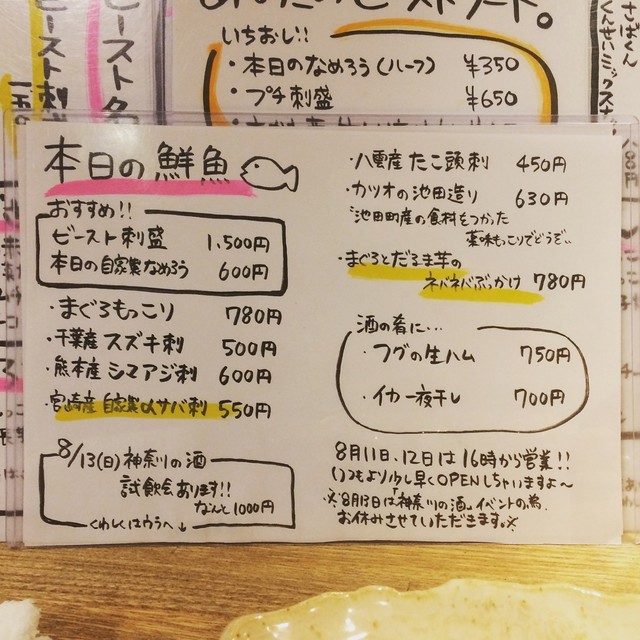 いちおし!!
・本日のなめろう(ハーフ) ¥350
・プチ刺盛 ¥650
ビースト刺
さばくん
くんせいミックス
本日の鮮魚
おすすめ!!
ビースト刺盛 1,500円
本日の自家製なめろう 600円
・まぐろもっこり 780円
・千葉産 スズキ刺 500円
・熊本産 シマアジ刺 600円
・宮崎産 自家製〆サバ刺 550円
8/13(日)神奈川の酒
試飲会あります!!
なんと1000円
くわしくはウラへ↓
・八重産 たこ頭刺 450円
・カツオの池田造り 630円
池田町産の食材をつかった
薬味もっこりでどうぞ..
・まぐろとだるま芋の
ネバネバぶっかけ 780円
酒の肴に…
・フグの生ハム 750円
・イカ一夜干し 700円
8月11日、12日は16時から営業!!
いつもより少し早くOPENしちゃいますよ〜
※8月13日は「神奈川の酒」イベントの為、
お休みさせていただきます。※